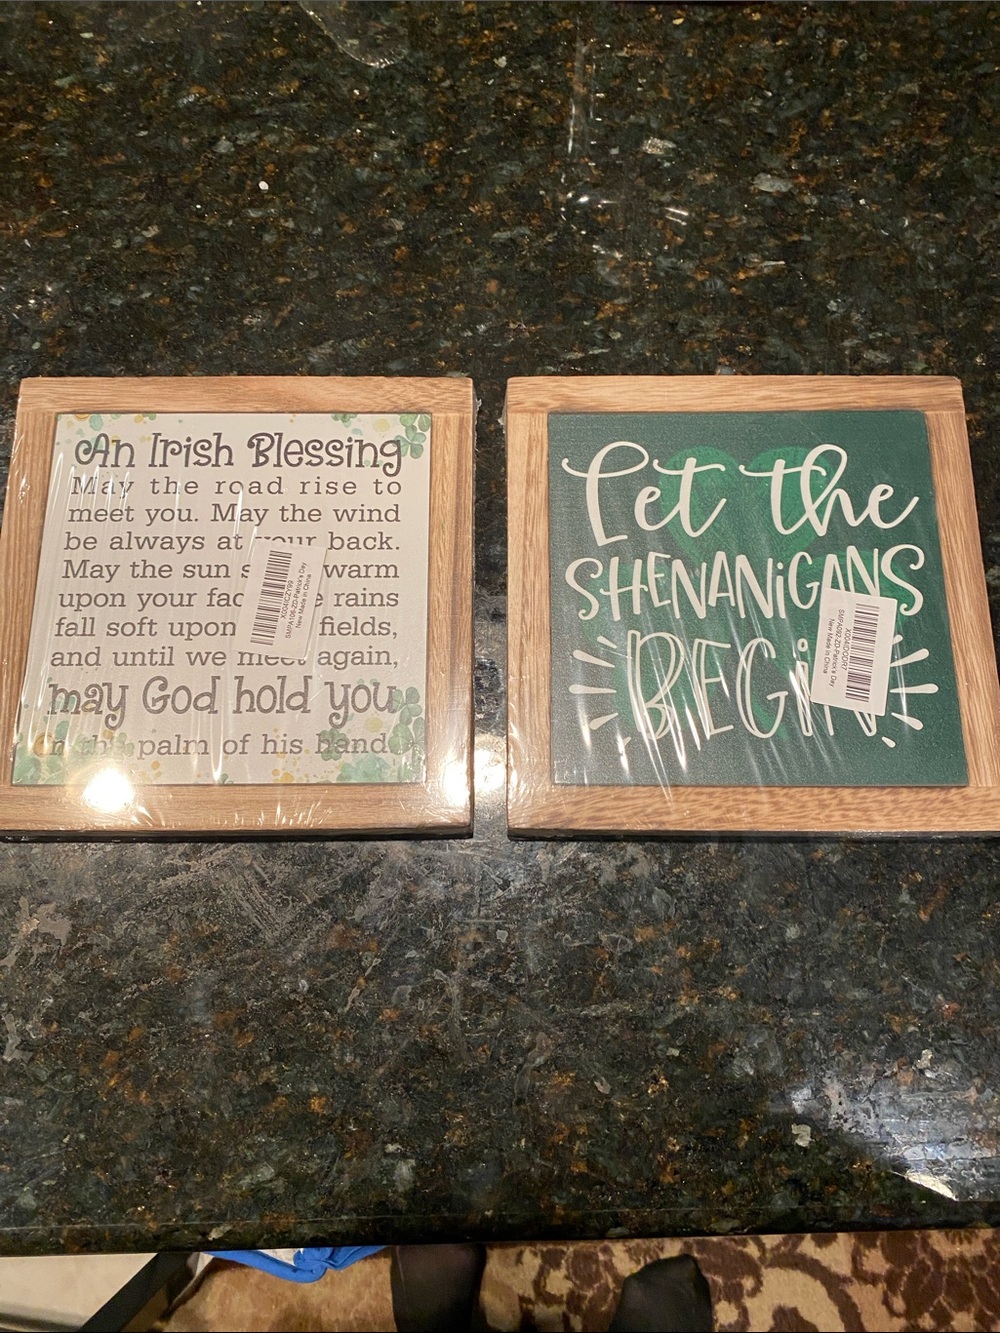 An Irish Blessing
May the road rise to
meet you. May the wind
be always at your back.
May the sun warm
upon your rains
fall soft upon fields,
and until we meet again,
may God hold you
palm of his hand.
SMPA106-ZD-Patrick's Day
New Made in China
Let the
SHENANiGANS
BEGiN
SMPA092-ZD-Patrick's Day
New Made in China